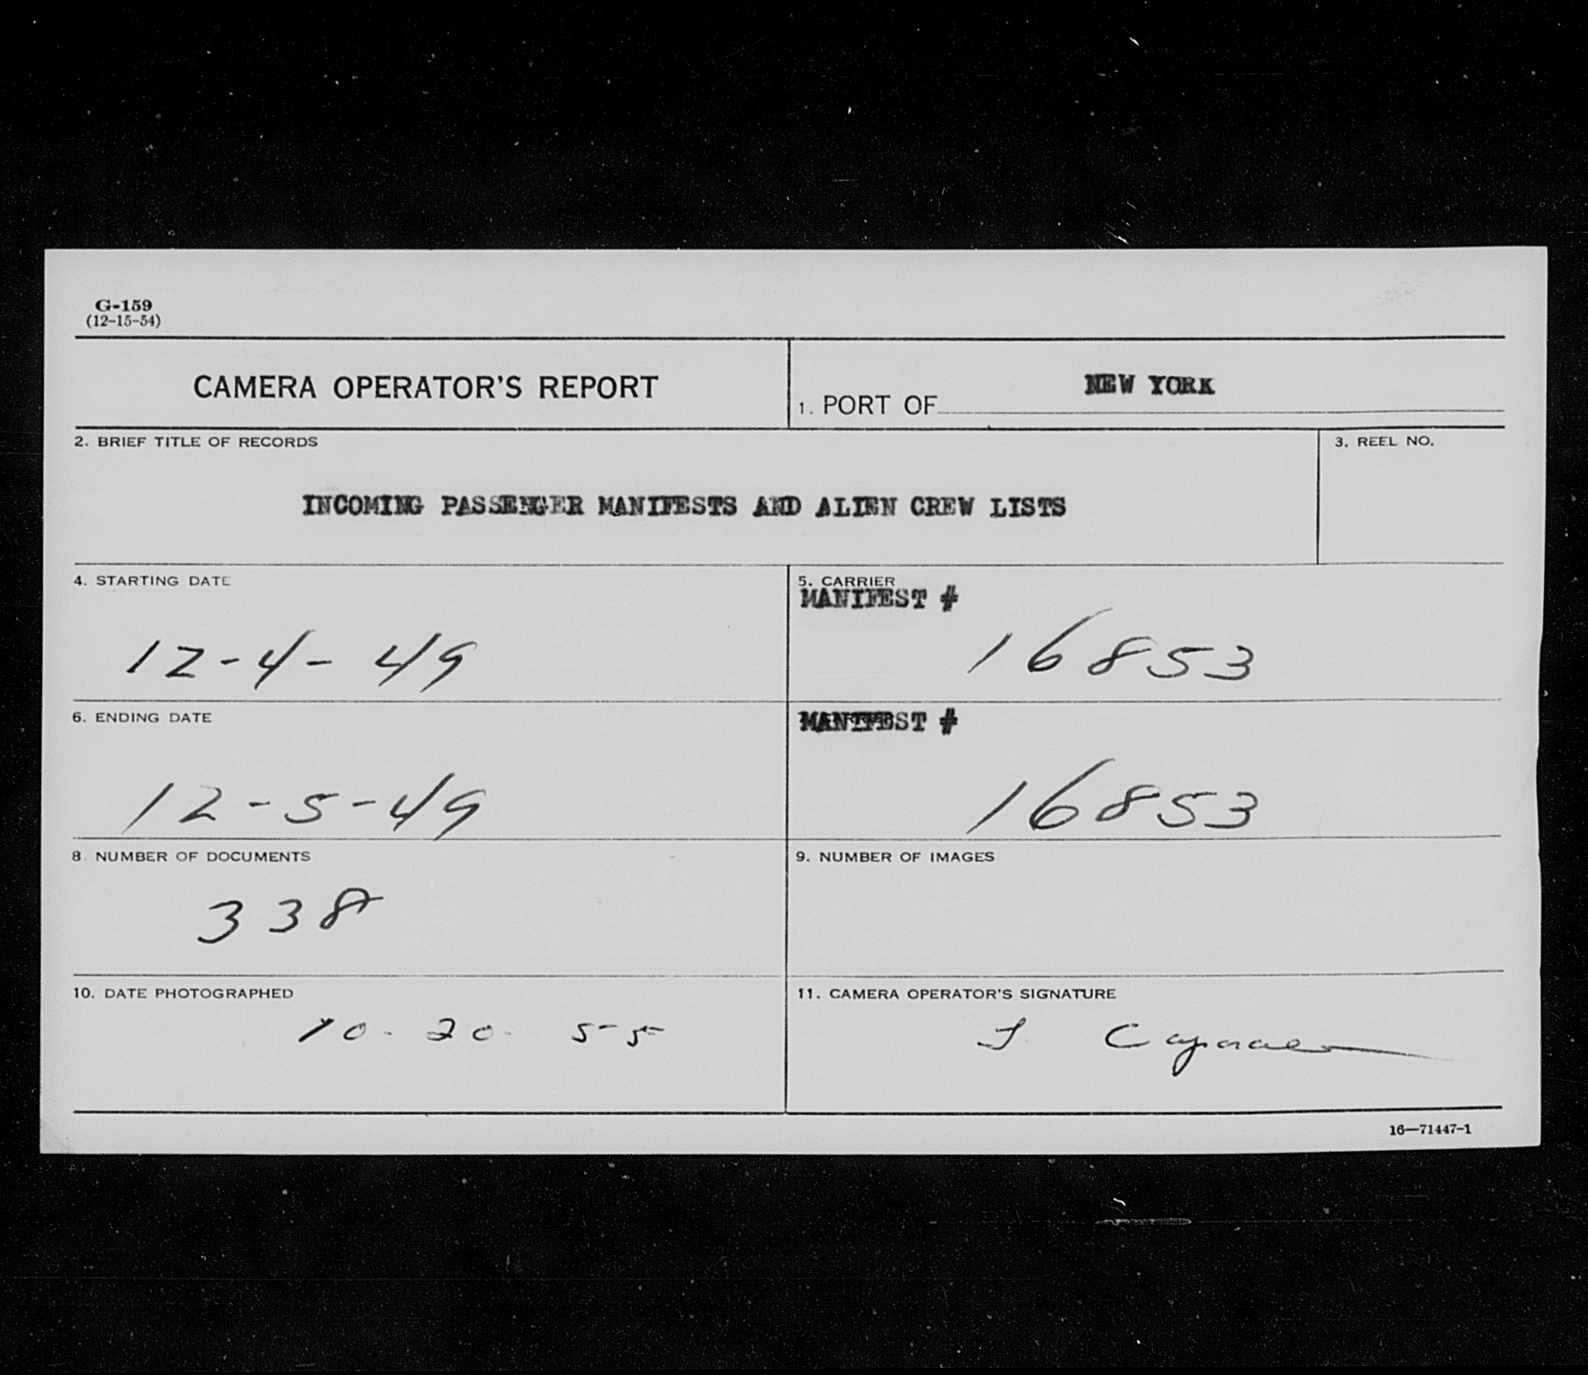 G-159
(12-15-54)
CAMERA OPERATOR'S REPORT
1. PORT OF NEW YORK
2. BRIEF TITLE OF RECORDS
3. REEL NO.
INCOMING PASSENGER MANIFESTS AND ALIEN CREW LISTS
4. STARTING DATE
12-4-49
5. CARRIER
MANIFEST #
16853
6. ENDING DATE
12-5-49
MANIFEST #
16853
8. NUMBER OF DOCUMENTS
338
9. NUMBER OF IMAGES
10. DATE PHOTOGRAPHED
10-20-55
11. CAMERA OPERATOR'S SIGNATURE
16—71447-1